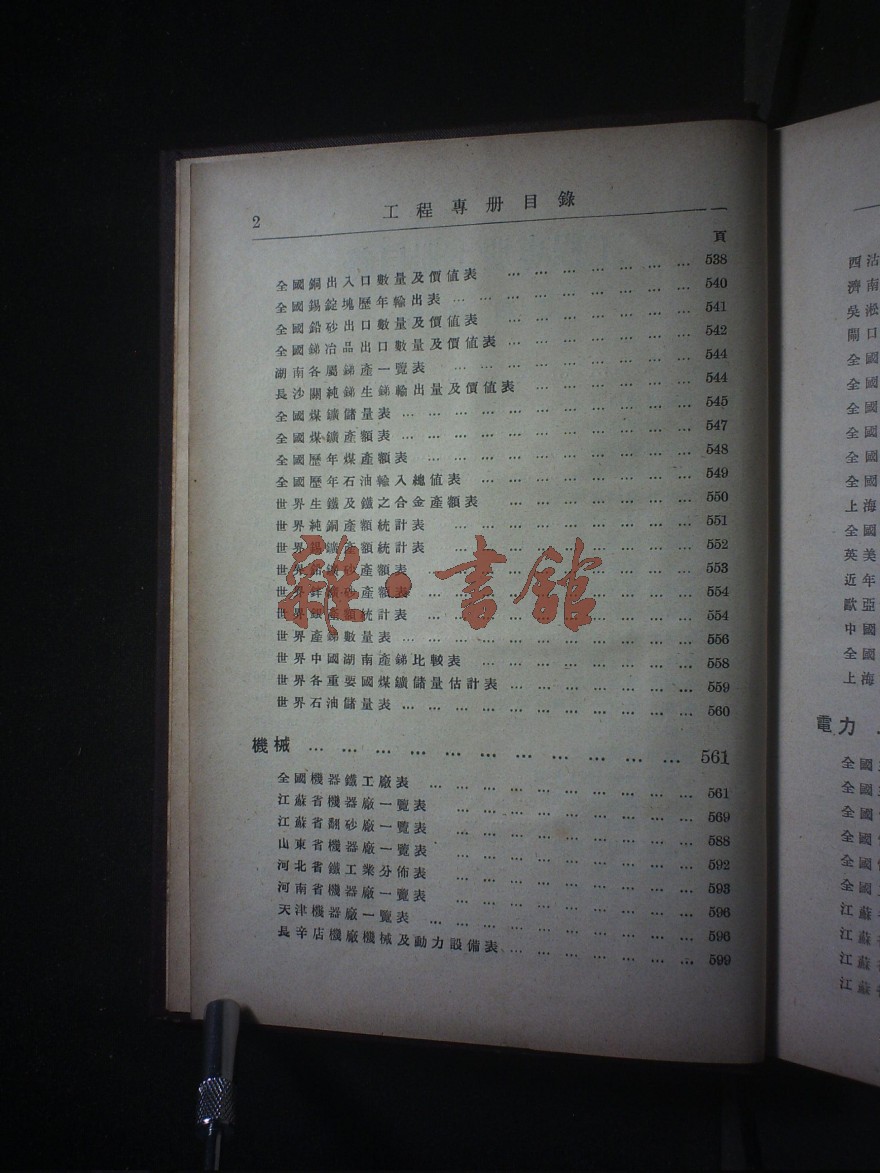 2
工程專册目錄
頁
全國銅出入口數量及價値表 … … … … … … … 538
全國錫錠塊歷年輸出表 … … … … … … … … 540
全國鉛砂出口數量及價値表 … … … … … … … 541
全國銻冶品出口數量及價値表 … … … … … … … 542
湖南各屬銻產一覽表 … … … … … … … … 544
長沙關純銻生銻輸出量及價値表 … … … … … … 544
全國煤鑛儲量表 … … … … … … … … … … 545
全國煤鑛產額表 … … … … … … … … … … 547
全國歷年煤產額表 … … … … … … … … … 548
全國歷年石油輸入總値表 … … … … … … … … 549
世界生鐵及鐵之合金產額表 … … … … … … … 550
世界純銅產額統計表 … … … … … … … … 551
世界錫鑛產額統計表 … … … … … … … … 552
世界鉛鑛砂產額表 … … … … … … … … … 553
世界鋅鑛砂產額表 … … … … … … … … … 554
世界銀產額統計表 … … … … … … … … … 554
世界產銻數量表 … … … … … … … … … … 556
世界中國湖南產銻比較表 … … … … … … … … 558
世界各重要國煤鑛儲量估計表 … … … … … … … 559
世界石油儲量表 … … … … … … … … … … 560
機械 … … … … … … … … … … … … 561
全國機器鐵工廠表 … … … … … … … … … 561
江蘇省機器廠一覽表 … … … … … … … … 569
江蘇省翻砂廠一覽表 … … … … … … … … 588
山東省機器廠一覽表 … … … … … … … … 592
河北省鐵工業分佈表 … … … … … … … … 593
河南省機器廠一覽表 … … … … … … … … 596
天津機器廠一覽表 … … … … … … … … … 596
長辛店機廠機械及動力設備表 … … … … … … … 599
雜·書館
西沽
濟南
吳淞
閘口
全國
全國
全國
全國
全國
全國
上海
全國
英美
近年
歐亞
中國
全國
上海
電力 …
全國
全國
全國
全國
全國
全國
江蘇
江蘇
江蘇
江蘇